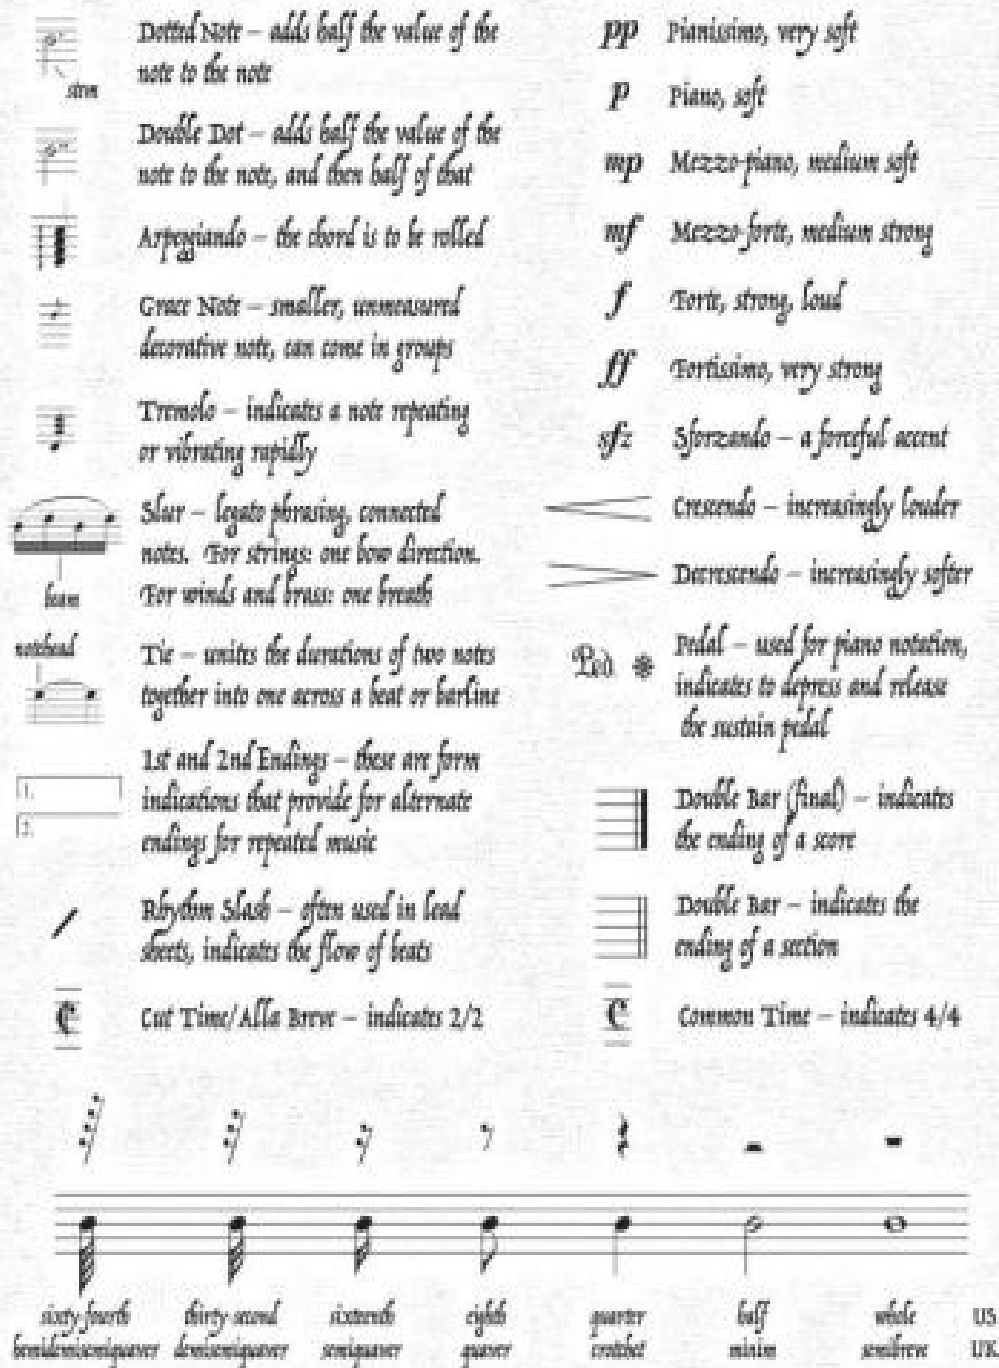 Dotted Note – adds half the value of the
note to the note
stem
Double Dot – adds half the value of the
note to the note, and then half of that
Arpeggiando – the chord is to be rolled
Grace Note – smaller, unmeasured
decorative note, can come in groups
Tremolo – indicates a note repeating
or vibrating rapidly
Slur – legato phrasing, connected
notes. For strings: one bow direction.
For winds and brass: one breath
beam
notehead
Tie – unites the durations of two notes
together into one across a beat or barline
1st and 2nd Endings – these are form
indications that provide for alternate
endings for repeated music
1.
2.
Rhythm Slash – often used in lead
sheets, indicates the flow of beats
Cut Time/Alla Breve – indicates 2/2
pp Pianissimo, very soft
p Piano, soft
mp Mezzo-piano, medium soft
mf Mezzo-forte, medium strong
f Forte, strong, loud
ff Fortissimo, very strong
sfz Sforzando – a forceful accent
Crescendo – increasingly louder
Decrescendo – increasingly softer
Ped. Pedal – used for piano notation,
indicates to depress and release
the sustain pedal
Double Bar (final) – indicates
the ending of a score
Double Bar – indicates the
ending of a section
Common Time – indicates 4/4
sixty-fourth thirty-second sixteenth eighth quarter half whole US
hemidemisemiquaver demisemiquaver semiquaver quaver crotchet minim semibreve UK